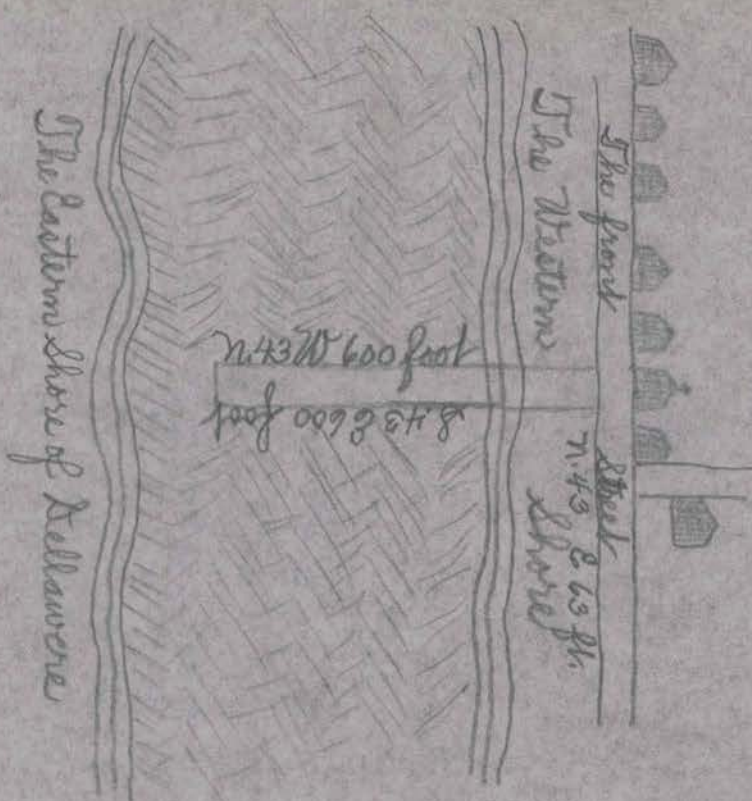 The front Street
n. 43 E 63 ft.
The Western Shore
n. 43 W 600 foot
S. 43 E 600 foot
The Eastern Shore of Dellawere